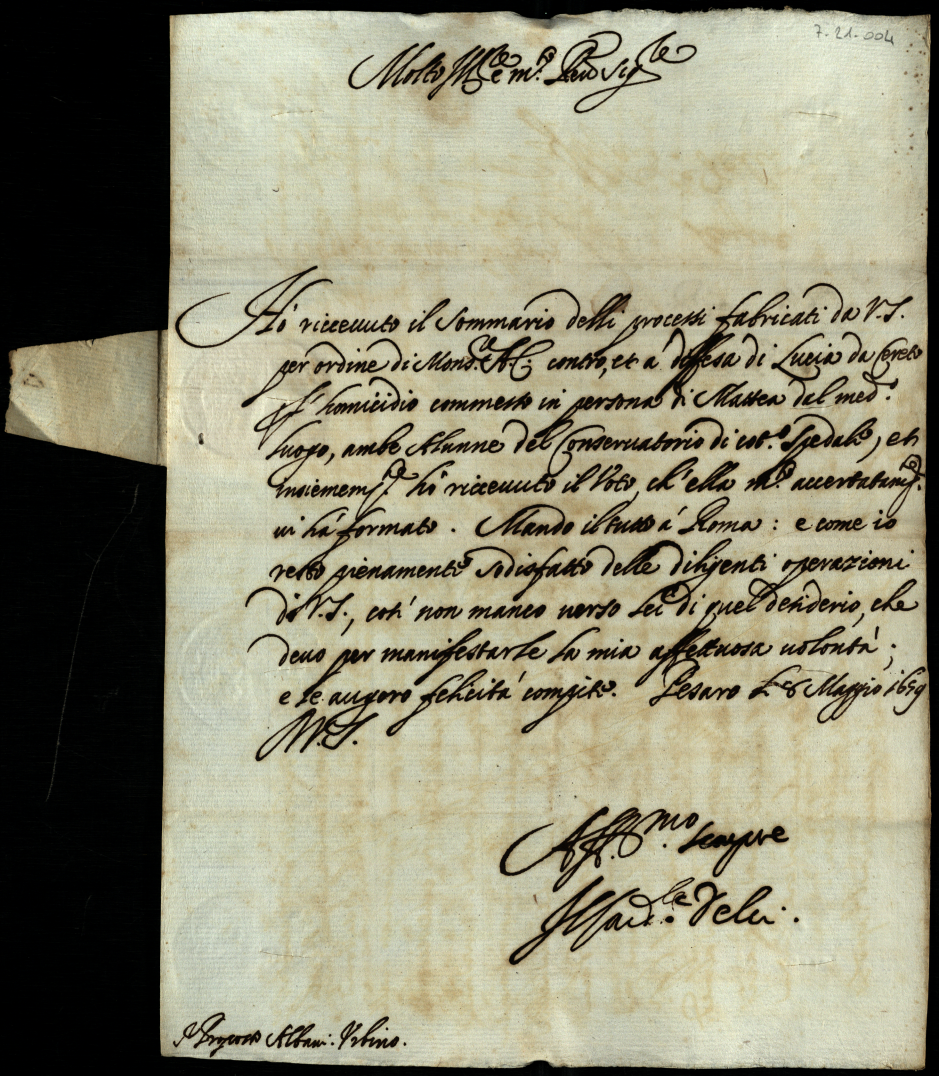 7-21-004
Molto Ill.re e m.to Rev.do Sig.re
Hò riceuuto il Sommario delli processi fabricati da V.S.
per ordine di Mons.r contro, et à diffesa di Lucia da Cereto
p l'homicidio commesso in persona di Mattea dal med.o
luogo, ambe Alunne del Conseruatorio di cot.o Spedale, et
insiemem.te hò riceuuto il Voto, ch'ella m.to accertatam.te
ui hà formato. Mando il tutto à Roma: e come io
resto pienamente sodisfatto delle diligenti operazioni
di V.S., così non manco uerso lei di quel desiderio, che
deuo per manifestarle la mia affettuosa uolontà;
e le auguro felicità compite. Pesaro Maggio 1659
V.S.
Aff.mo sempre
Il Card.le Delci.
Albani. Vrbino.